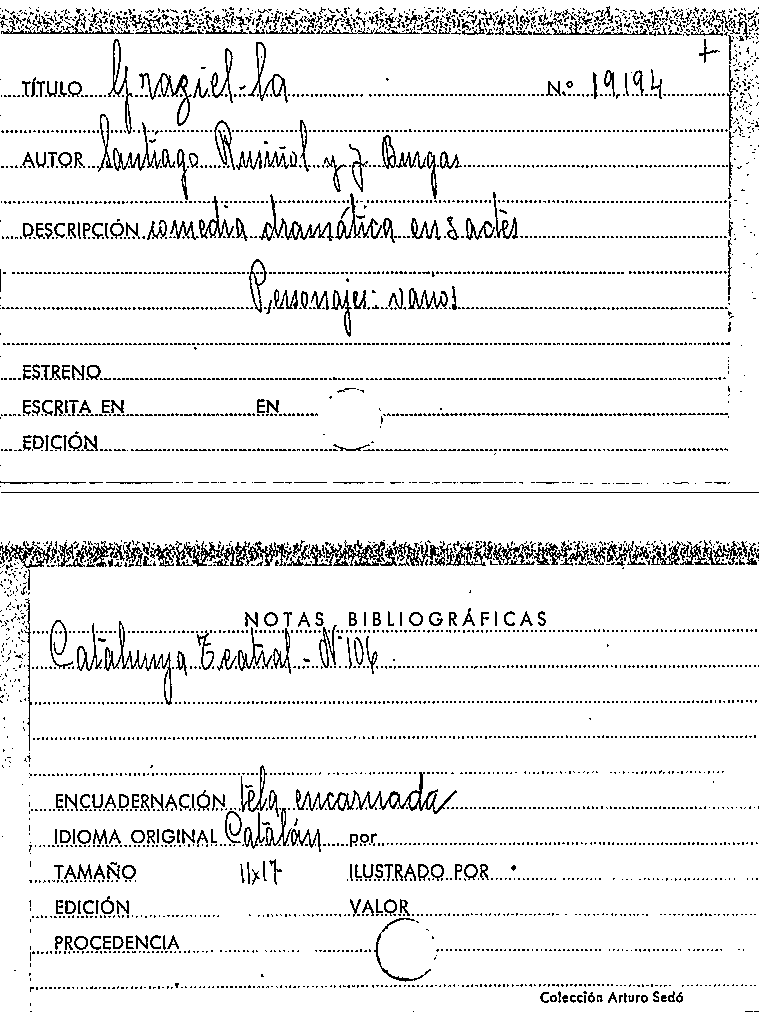 +
TÍTULO Graziel-la N.º 19,194
AUTOR Santiago Rusiñol y J Burgas
DESCRIPCIÓN comedia dramática en 3 actes
Personajes: varios
ESTRENO
ESCRITA EN EN
EDICIÓN
NOTAS BIBLIOGRÁFICAS
Catalunya Teatral - Nº 106
ENCUADERNACIÓN tela encarnada
IDIOMA ORIGINAL Catalán por
TAMAÑO 11x17 ILUSTRADO POR
EDICIÓN VALOR
PROCEDENCIA
Colección Arturo Sedó